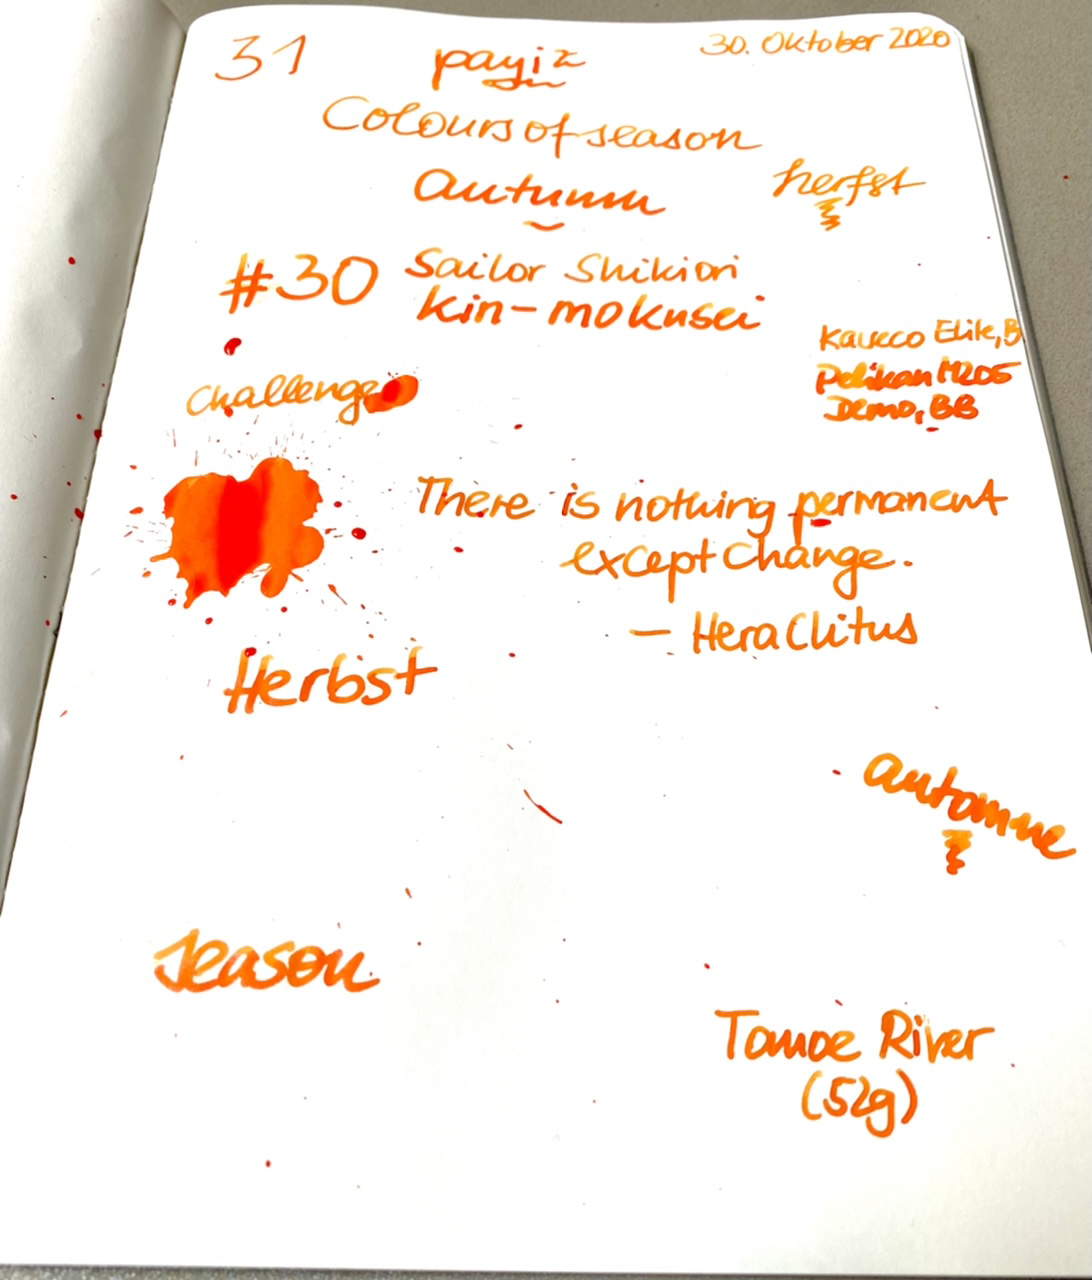 31
payiz
30. Oktober 2020
Colours of season
autumn
herfst
#30 Sailor Shikiori
kin-mokusei
Kaweco Elite, B
Pelikan M205
Demo, BB
challenge
There is nothing permanent
except change.
— Heraclitus
Herbst
automne
season
Tomoe River
(52g)